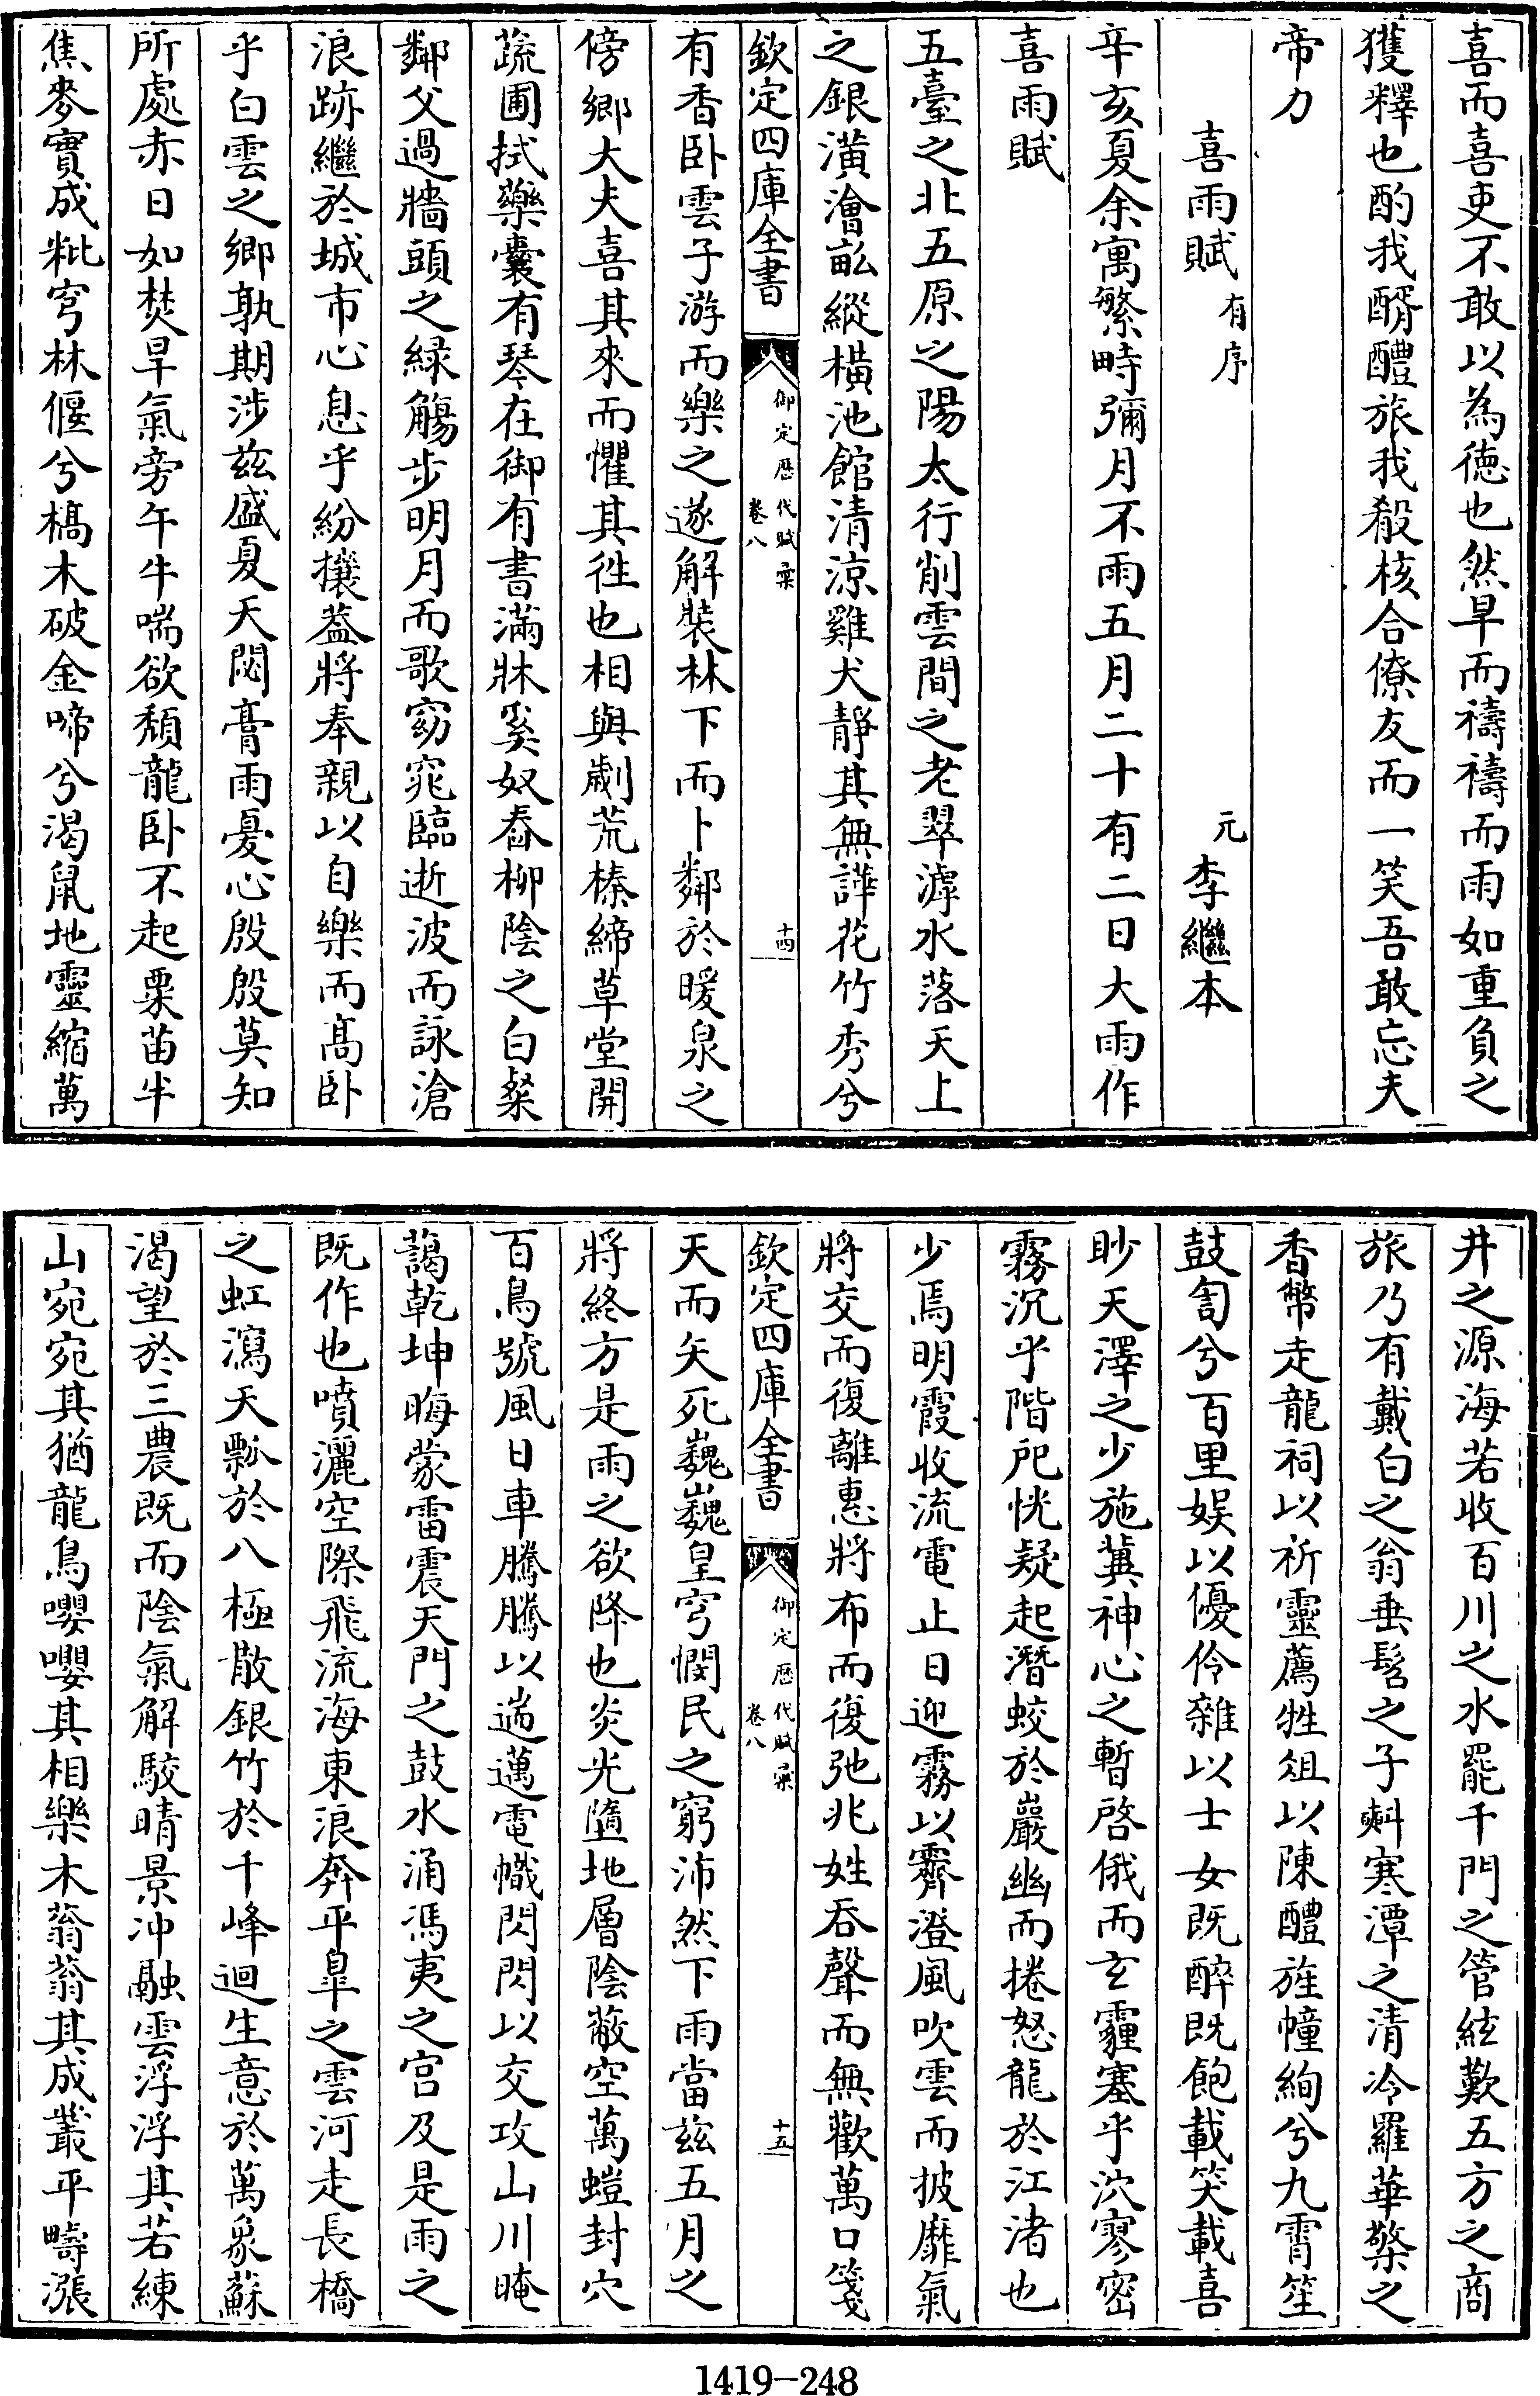 喜而喜吏不敢以為德也然旱而禱禱而雨如重負之
獲釋也酌我醑醴旅我殽核合僚友而一笑吾敢忘夫
帝力
喜雨賦有序
元李繼本
辛亥夏余寓繁畤彌月不雨五月二十有二日大雨作
喜雨賦
五臺之北五原之陽太行削雲間之老翠滹水落天上
之銀潢澮畝縱橫池館清涼雞犬靜其無譁花竹秀兮
欽定四庫全書
御定歷代賦彙
卷八
十四
有香卧雲子游而樂之遂解裝林下而卜鄰於暖泉之
傍鄉大夫喜其來而懼其徃也相與劚荒榛締草堂開
蔬圃拭藥囊有琴在御有書滿牀奚奴舂柳陰之白粲
鄰父過牆頭之緑觴步明月而歌窈窕臨逝波而詠滄
浪跡繼於城市心息乎紛攘葢將奉親以自樂而髙卧
乎白雲之鄉孰期涉兹盛夏天閟膏雨憂心殷殷莫知
所處赤日如焚旱氣旁午牛喘欲頽龍卧不起粟苗半
焦麥實成粃穹林偃兮槁木破金啼兮渴鼠地靈縮萬
井之源海若收百川之水罷千門之管絃歎五方之商
旅乃有戴白之翁垂髫之子㪺寒潭之清冷羅華檠之
香幣走龍祠以祈靈薦牲俎以陳醴旌幢絢兮九霄笙
鼓訇兮百里娱以優伶雜以士女既醉既飽載笑載喜
眇天澤之少施冀神心之暫啓俄而玄霾塞乎泬寥密
霧沉乎階戺恍疑起潛蛟於巖幽而捲怒龍於江渚也
少焉明霞收流電止日迎霧以霽澄風吹雲而披靡氣
將交而復離惠將布而復弛兆姓吞聲而無歡萬口箋
欽定四庫全書
御定歷代賦彙
卷八
十五
天而矢死巍巍皇穹憫民之窮沛然下雨當兹五月之
將終方是雨之欲降也炎光墮地層陰蔽空萬螘封穴
百鳥號風日車騰騰以遄邁電幟閃閃以交攻山川晻
藹乾坤晦蒙雷震天門之鼓水涌馮夷之宫及是雨之
既作也噴灑空際飛流海東浪奔平臯之雲河走長橋
之虹瀉天瓢於八極散銀竹於千峰迴生意於萬象蘇
渴望於三農既而陰氣解駮晴景冲融雲浮浮其若練
山宛宛其猶龍鳥嚶嚶其相樂木蓊蓊其成叢平疇漲
1419-248